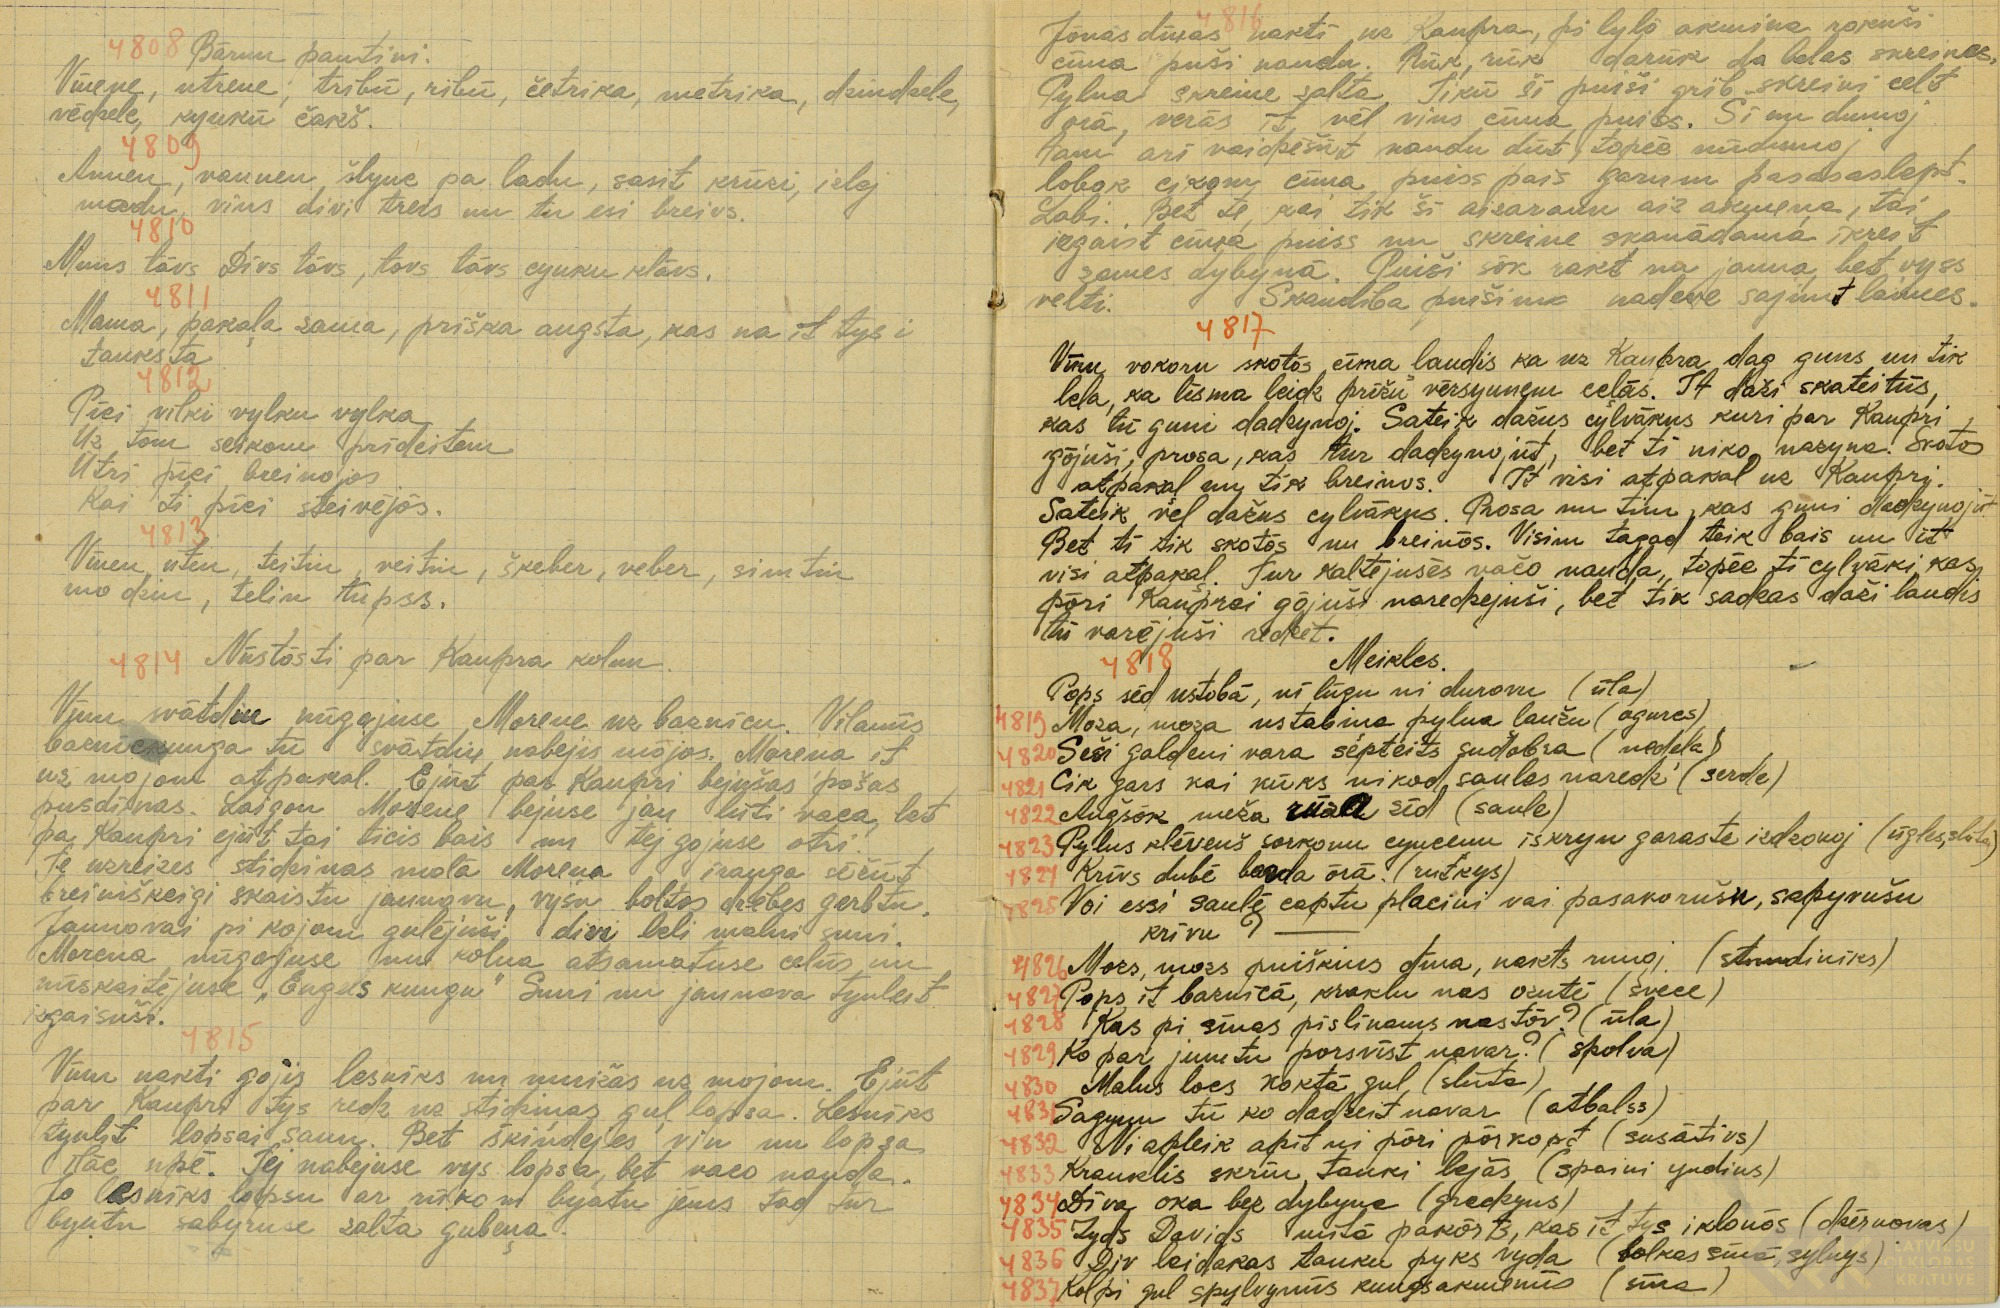 4808 Bārnu pantiņi.
Vīnene, utrene, tribū, ribū, četrika, metrika, dzindzele,
vēdzele, kyukū čakš.
4809
Annen, vannen, šlync pa ladu, sasit krūzi, izlej
madu, vins divi treis nu tu esi breivs.
4810
Muns tāvs Divs tāvs, tovs tāvs cyuku klāvs.
4811
Mama, pakaļa zama, priška augsta, kas na it tys i
tauksta
4812
Pīci vilki vylku vylka
Uz tom seikom prīdeitem
Utri pīci breinojos
Kai ti pīci steivējōs.
4813
Vinen, uten, teitin, veitin, škeber, veber, simtin
modzin, telin tupss.
4814 Nūstōsti par Kaupra kolnu.
Vinu svātdin nūgojuse Morene uz baznīcu. Vilanūs
baznickunga tū svātdin nabejis mōjos. Morena it
uz mojom atpakal. Ejūt par Kaupri bejušas pošas
pusdinas. Laigon Morene bejuse jau lūti vaca, bet
pa Kaupri ejūt tai ticis bais un tej gojuse otri.
Te uzreizes stidzinas molā Morena irauga sēžūt
breiniškeigi skaistu jaunovu, vysu boltos drēbes gerbtu.
Jaunovai pi kojom gulējuši divi leli malni suni.
Morena nūgojuse nu kolna atsamatuse celūs un
nūskaitējuse "Engels kungu" Suni un jaunova tyuleit
izgaisuši.
4815
Vinu nakti gojis lesniks nu muižas uz mojom. Ejūt
par Kaupri tys redz uz stidzinas gul lopsa. Lesniks
tyulit lopsai saun. Bet škindejes vin nu lopsa
īlāc upē. Jej nabejuse vys lopsa, bet vaco nauda.
Jo lesniks lopsu ar rūkom byutu jēms tad tur
byutu sabyruse zalta gubeņa.
4816
Jōnasdinas nakti uz Kaupra, pi lylō akmiņa rokuši
cima puši naudu. Rūk, rūk darūk da lelas skreines.
Pylna skreine zalta. Tikū ši puiši grib skreini celt
orā, verās it vēl vins cima puiss. Ši nu dumoj
tam ari vaidzēšūt naudu dūt, topēc nūdumoj
lobok cikom cima puiss pais garum pasasaslept.
Labi. Bet te, kai tik ši aizaraun aiz akmena, tai
izgaist cima puiss nu skreine skanādama ikreit
zemes dybynā. Puiši sōk rakt na jauna, bet vyss
velti. Skaudība puišim nadeve sajimt laimes.
4817
Vinu vokoru skotōs cima laudis ka uz Kaupra dag guns un tik
lela, ka lisma leidz prižu vērsyunem celās. It daži skateitūs,
kas tū guni dadzynoj. Sateik dažus cylvākus kuri par Kaupri
gōjuši, prosa, kas tur dadzynojūt, bet ti niko nazyna. Skotos
atpakal un tik breinos. It visi atpakal uz Kaupri.
Sateik vēl dažus cylvākus. Prosa nu tim, kas guni dadzynojūt
Bet ti tik skotōs un breinōs. Visim tagad teik bais un it
visi atpakal. Tur kaltējusēs vačo nauda, topēc ti cylvāki, kas
pōri Kauprai gōjuši naredzejuši, bet tik sadzas daži laudis
tū varējuši redzēt.
4818 Meikles.
Pops sēd ustobā, ni lūgu ni durovu (ūla)
4819 Moza, moza ustabina pylna laužu (ogures)
4820 Seši galdeni vara septeits sudobra (nedela)
4821 Cik gars kai kūks nikod saules naredz (serde)
4822 Augšok meža rūza zid (saule)
4823 Pylns klēvenš sorkonu cyucenu iskryn garaste izdzonoj (ūgles, slūta)
4824 Krivs dubē borda ōrā. (rutkys)
4825 Voi essi saulē captu placini vai pasakorušu, sapyvušu
krivu?
4826 Mozs, mozs puiškins dina, nakts runoj (stundiniks)
4827 Pops it baznicā, kraklu nas ozutē (svece)
4828 Kas pi sinas pislinams nastōv? (ūla)
4829 Ko par jumtu porsvist navar? (spolva)
4830 Malns locs koktā gul (slūta)
4831 Sagyun tū ko dadzeit navar (atbalss)
4832 Ni apleik apit ni pōri pōrkopt (susātivs)
4833 Krauklis skrin, tauki lejās (spaini yudins)
4834 Diva oka bez dybyna (gredzyns)
4835 Zyds Davids mitā pakōrts, kas it tys iklonōs (dzērnovas)
4836 Div laidakas tauku pyks vydā (bolkas sinā, sylnys)
4837 Kolpi gul spylvynūs kungs akmenūs (sina)
LATVIEŠU
FOLKLORAS
KRĀTUVE